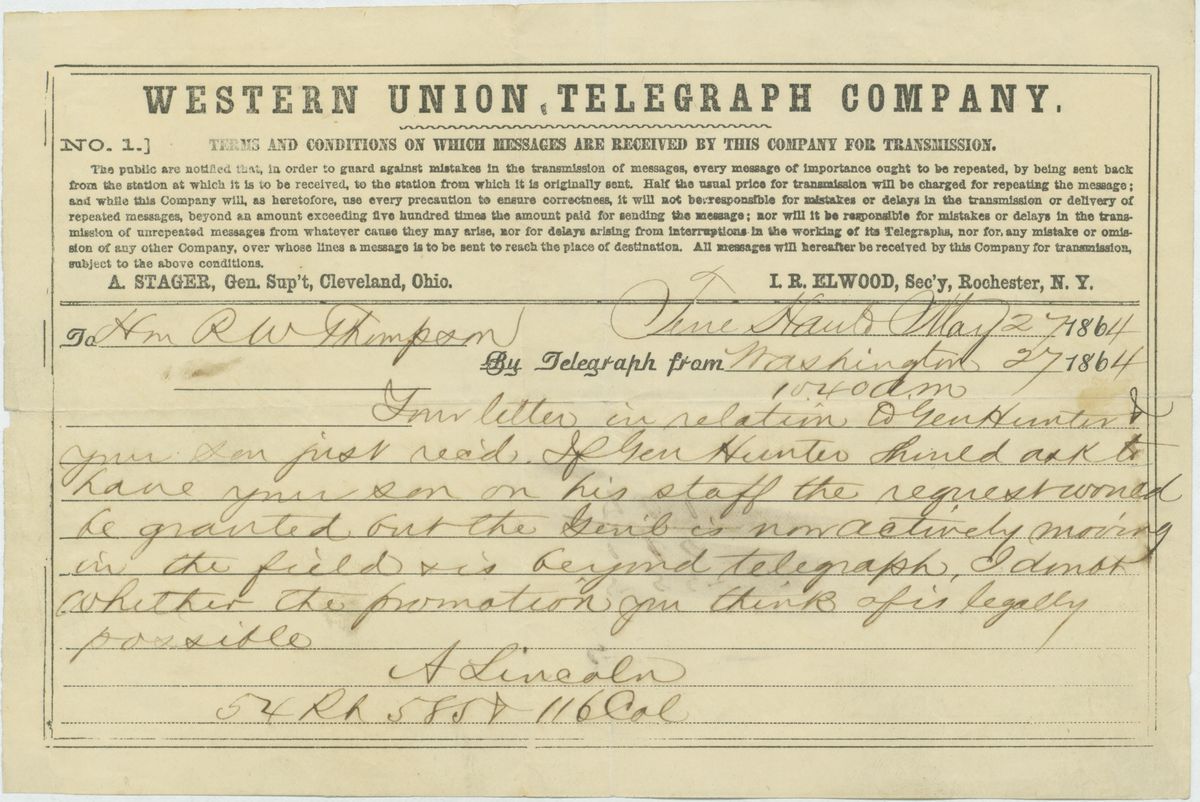 WESTERN UNION TELEGRAPH COMPANY.
NO. 1.] TERMS AND CONDITIONS ON WHICH MESSAGES ARE RECEIVED BY THIS COMPANY FOR TRANSMISSION.
The public are notified that, in order to guard against mistakes in the transmission of messages, every message of importance ought to be repeated, by being sent back
from the station at which it is to be received, to the station from which it is originally sent. Half the usual price for transmission will be charged for repeating the message;
and while this Company will, as heretofore, use every precaution to ensure correctness, it will not be responsible for mistakes or delays in the transmission or delivery of
repeated messages, beyond an amount exceeding five hundred times the amount paid for sending the message; nor will it be responsible for mistakes or delays in the trans-
mission of unrepeated messages from whatever cause they may arise, nor for delays arising from interruptions in the working of its Telegraphs, nor for any mistake or omis-
sion of any other Company, over whose lines a message is to be sent to reach the place of destination. All messages will hereafter be received by this Company for transmission,
subject to the above conditions.
A. STAGER, Gen. Sup't, Cleveland, Ohio. I. R. ELWOOD, Sec'y, Rochester, N. Y.
Terre Haute May 27 1864
To Hon R W Thompson
By Telegraph from Washington 27 1864
10.40 a.m
Your letter in relation to Gen Hunter &
your son just rec'd. If Gen Hunter should ask to
have your son on his staff the request would
be granted but the Genl is now actively moving
in the field & is beyond telegraph. I do not
whether the promotion you think of is legally
possible
A Lincoln
54 Rh 585 & 116 Col